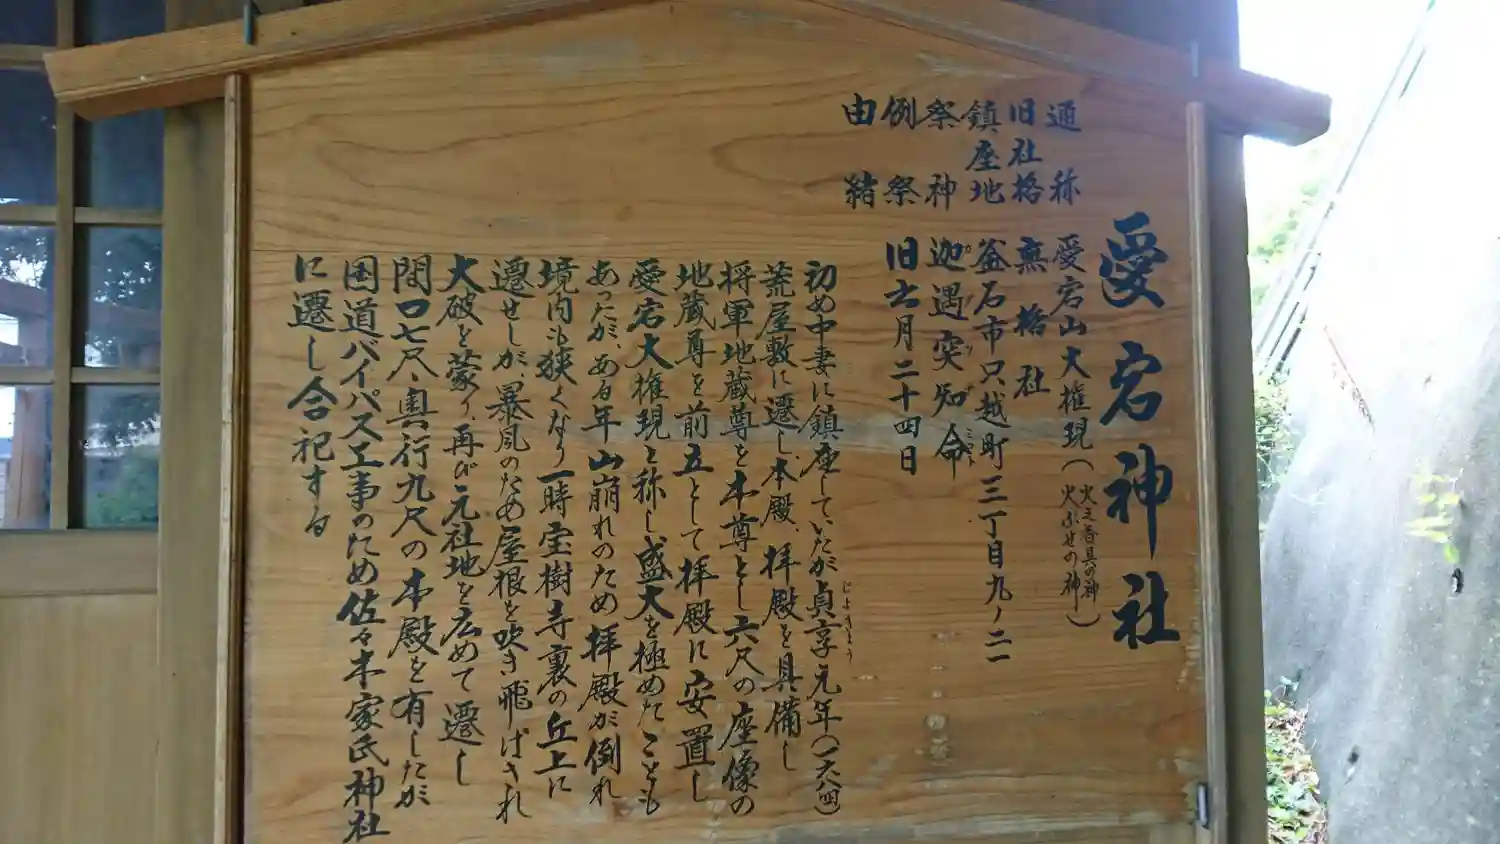 愛宕神社
通称 愛宕山大権現(火之番具の神 火ぶせの神)
旧社格 無格社
鎮座地 釜石市只越町三丁目九ノ二一
祭神 迦遇突知命
例祭 旧六月二十四日
由緒
初め中妻に鎮座していたが貞享元年(一六八四)
荒屋敷に遷し本殿、拝殿を具備し
将軍地蔵尊を本尊とし六尺の座像の
地蔵尊を前立として拝殿に安置し
愛宕大権現と称し盛大を極めたこともも
あったが、ある年山崩れのため拝殿が倒れ
境内も狭くなり一時宝樹寺裏の丘上に
遷せしが、暴風のため屋根を吹き飛ばされ
大破を蒙り再び元社地を広めて遷し
間口七尺、奥行九尺の本殿を有したが
国道バイパス工事のため佐々木家氏神社
に遷し合祀する